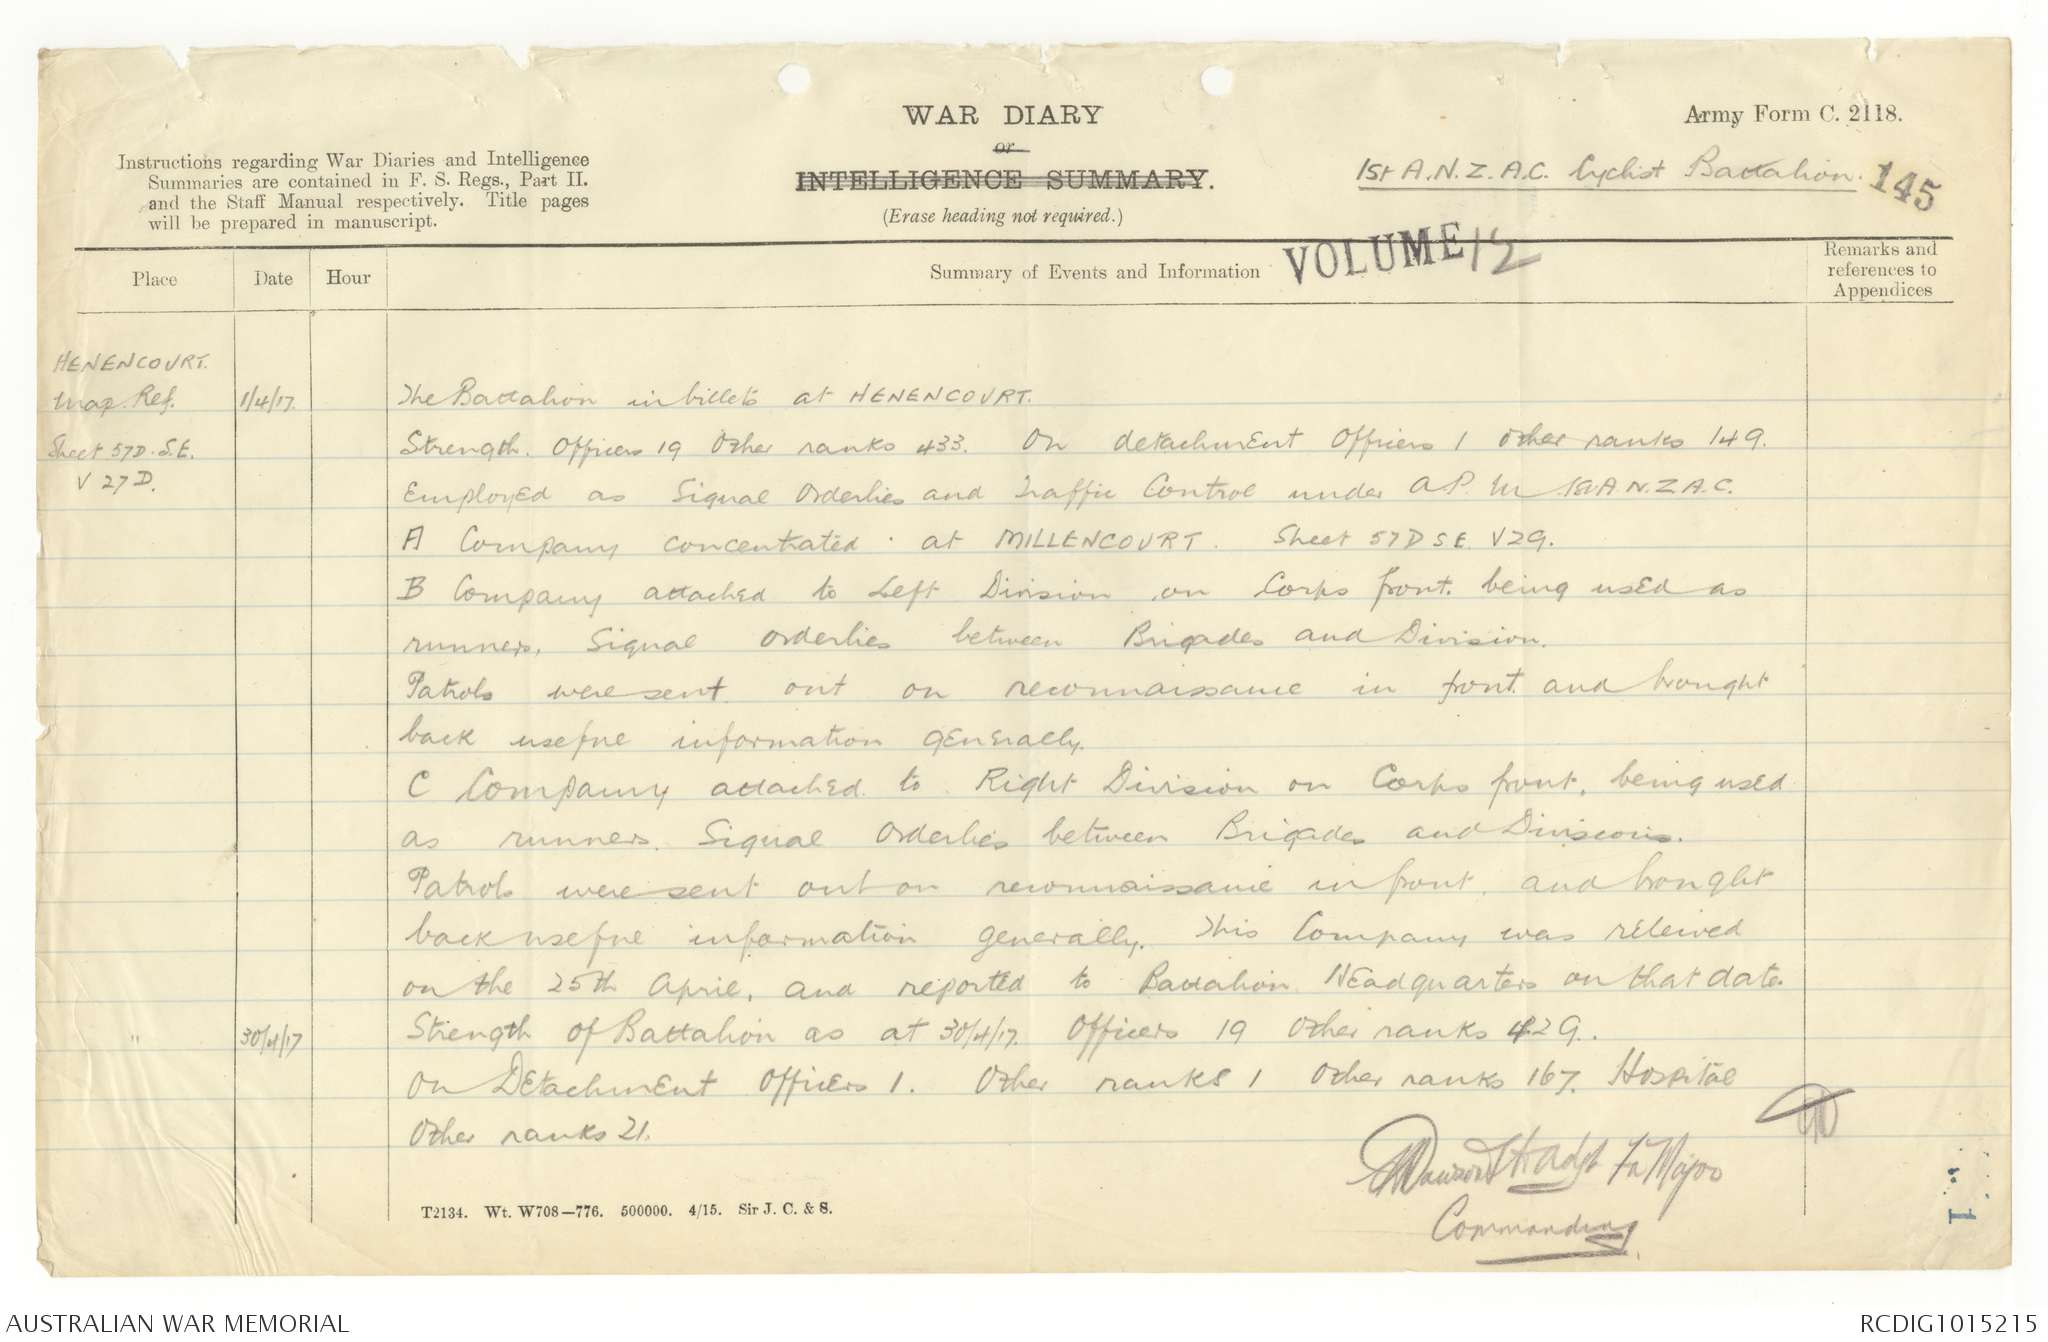 WAR DIARY
or
INTELLIGENCE SUMMARY.
(Erase heading not required.)
Army Form C. 2118.
Instructions regarding War Diaries and Intelligence
Summaries are contained in F. S. Regs., Part II.
and the Staff Manual respectively. Title pages
will be prepared in manuscript.
1st A.N.Z.A.C. Cyclist Battalion.
145
VOLUME 12
Place
Date
Hour
Summary of Events and Information
Remarks and
references to
Appendices
HENENCOURT.
Map. Ref.
Sheet 57D. S.E.
V 27 D.
1/4/17.
The Battalion in billets at HENENCOURT.
Strength. Officers 19 Other ranks 433. On detachment Officers 1 other ranks 149.
Employed as Signal Orderlies and Traffic Control under A.P.M 1st A.N.Z.A.C.
A Company concentrated at MILLENCOURT. Sheet 57D S E. V29.
B Company attached to Left Division on Corps front. being used as
runners, Signal orderlies between Brigades and Division.
Patrols were sent out on reconnaissance in front and brought
back useful information generally.
C Company attached to Right Division on Corps front, being used
as runners. Signal Orderlies between Brigades and Divisions.
Patrols were sent out on reconnaissance in front, and brought
back useful information generally. This Company was releived
on the 25th April, and reported to Battalion Headquarters on that date.
" 30/4/17
Strength of Battalion as at 30/4/17. Officers 19 Other ranks 429.
On Detachment Officers 1. Other ranks 1 Other ranks 167. Hospital
Other ranks 21.
Lt & Adjt For Major
Commanding
T2134. Wt. W708—776. 500000. 4/15. Sir J. C. & S.
AUSTRALIAN WAR MEMORIAL
RCDIG1015215